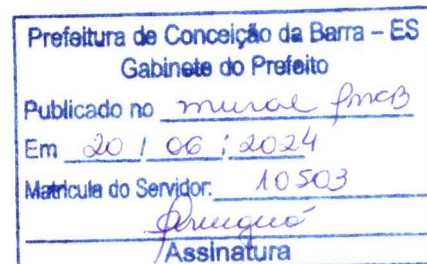 Prefeitura de Conceição da Barra – ES
Gabinete do Prefeito
Publicado no mural PMCB
Em 20 / 06 / 2024
Matrícula do Servidor: 10503
Assinatura